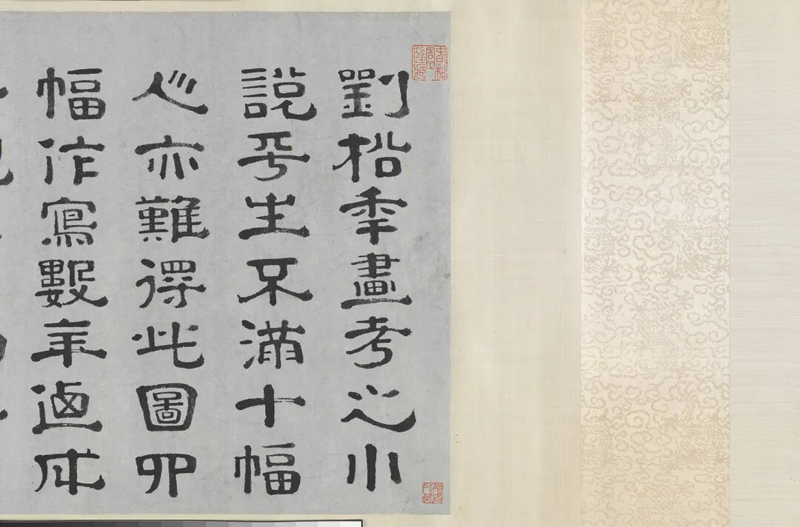 劉松年畫考之小
說平生不滿十幅
心亦難得此圖四
幅作寫數年迺成